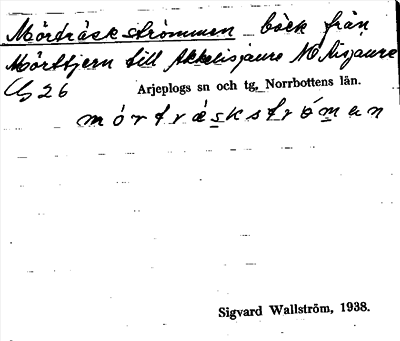 Mörtträskströmmen bäck från
Mörttjern till Akkelisjaure
G 26
Arjeplogs sn och tg, Norrbottens län.
mórtrèskstrómen
Sigvard Wallström, 1938.